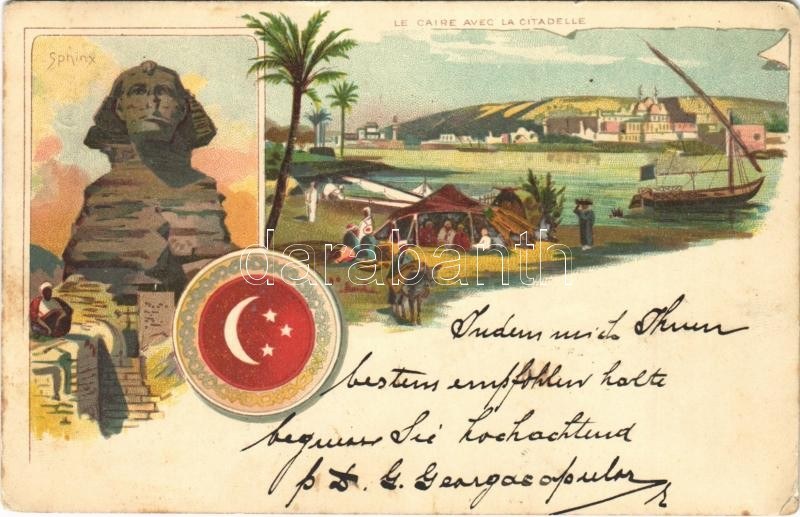 LE CAIRE AVEC LA CITADELLE
Sphinx
darabanth
Indem mich Ihnen
bestens empfohlen halte
Sie hochachtend
p D. G. Georgacopulos